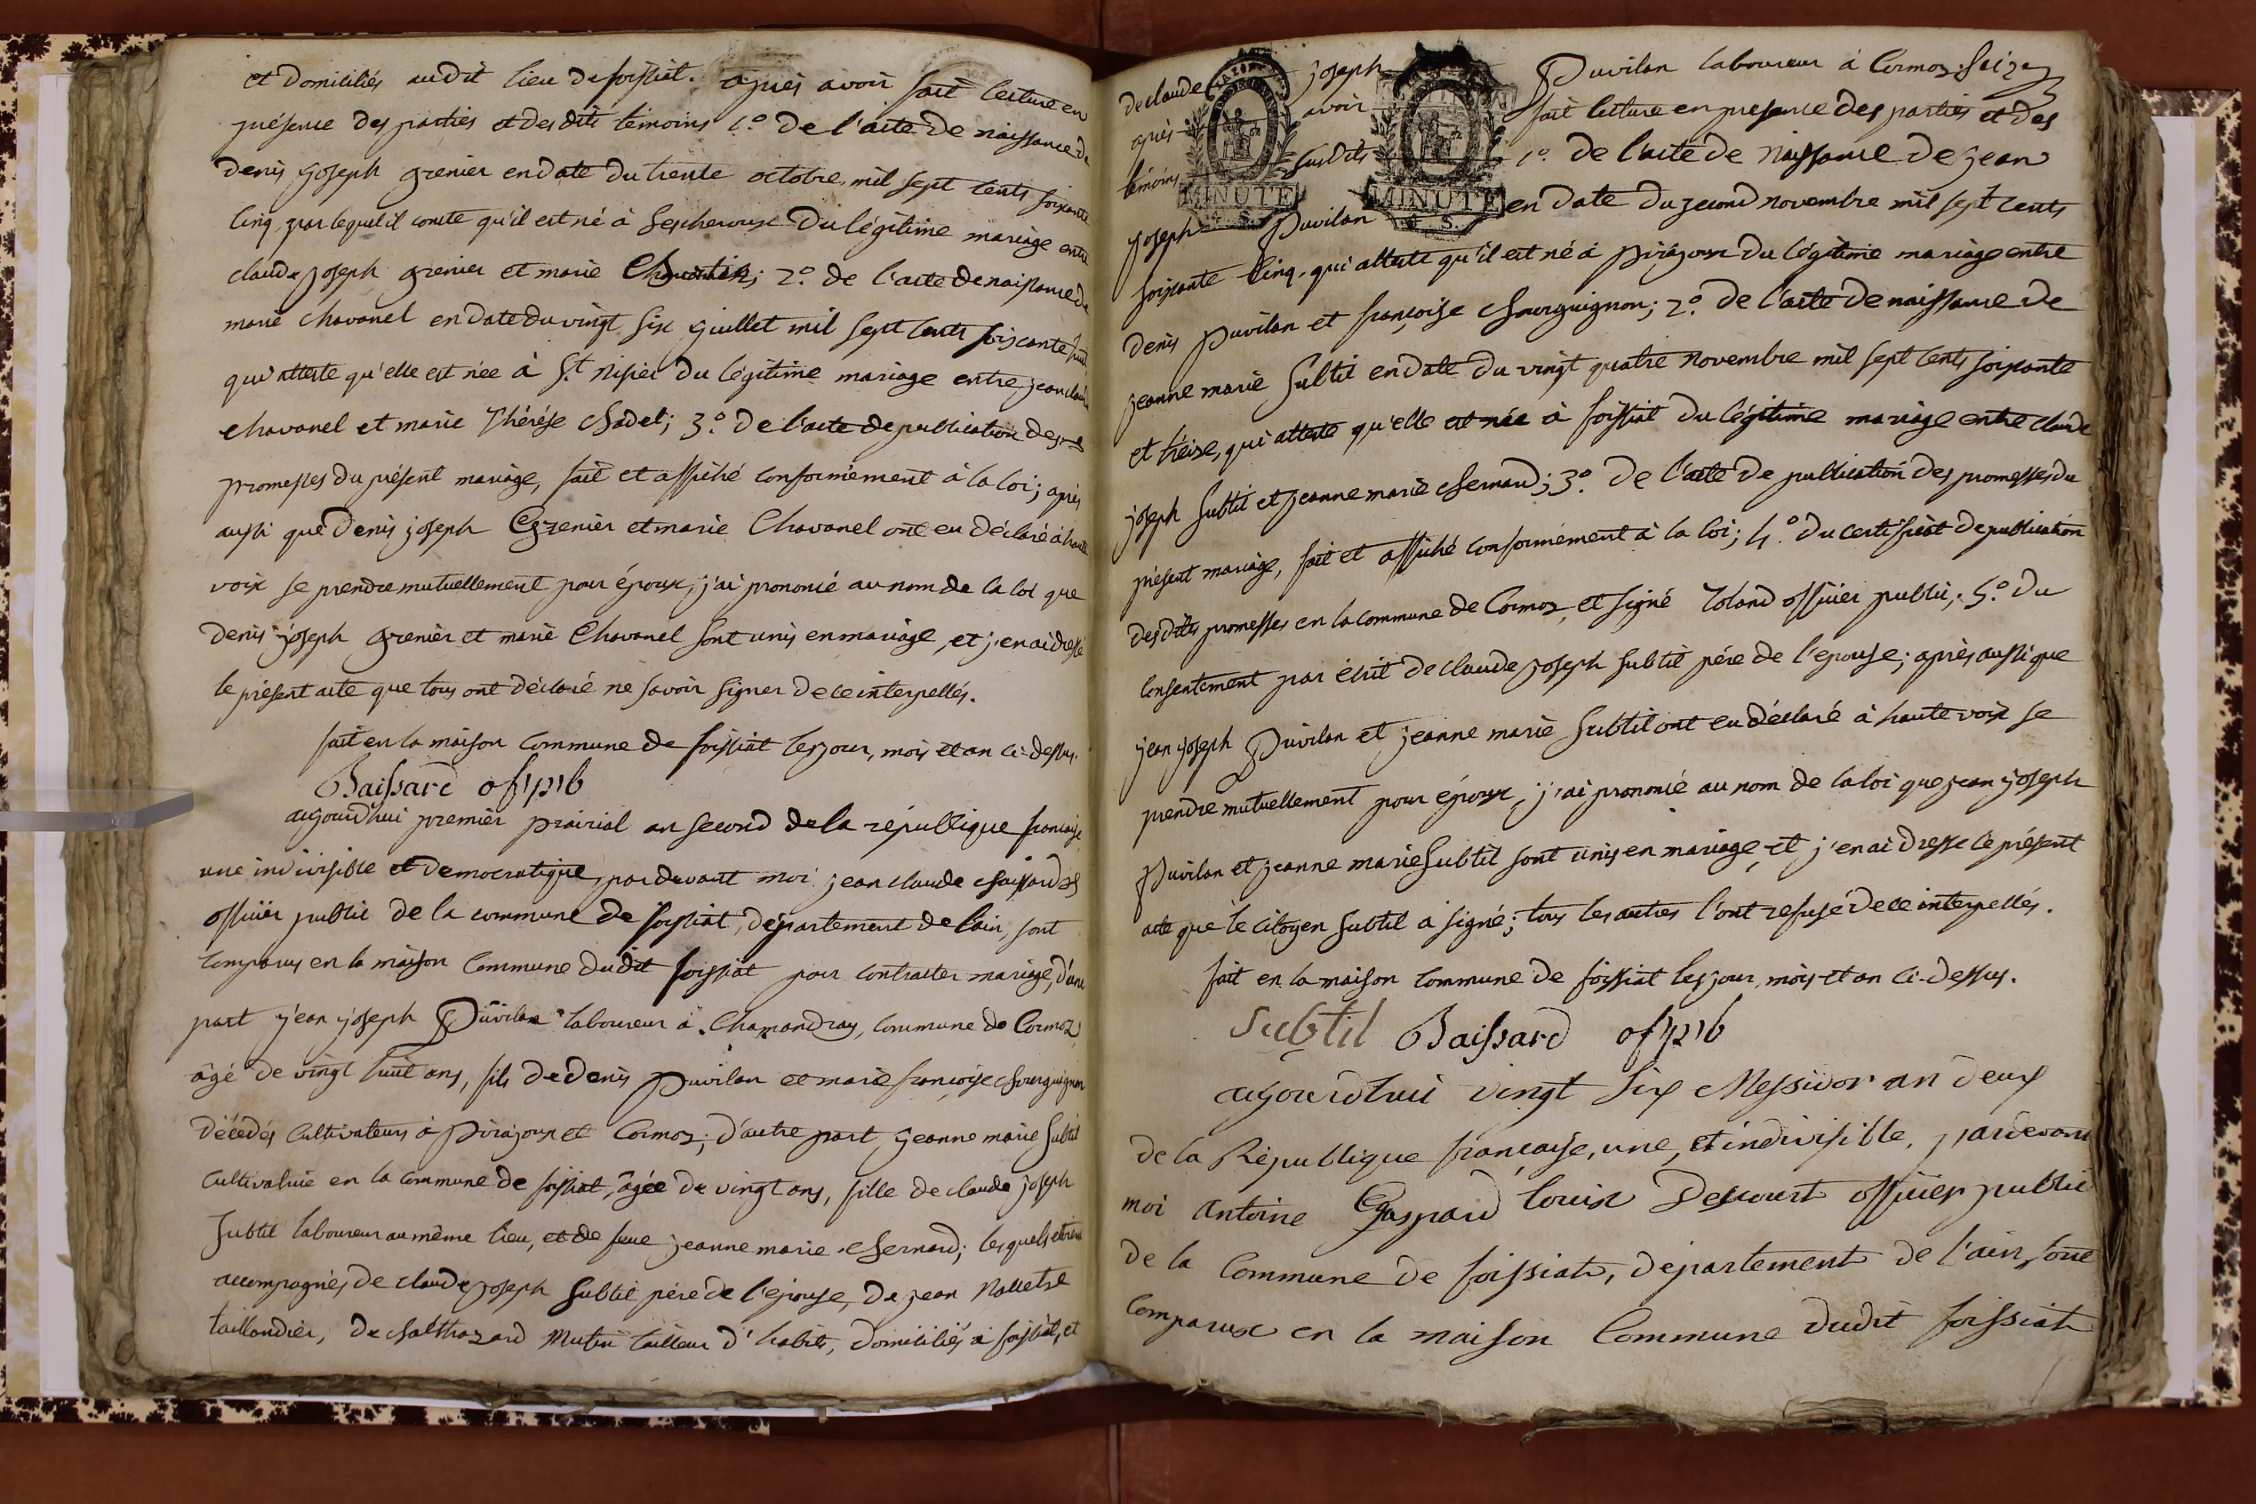 et Domiciliés audit lieu de foissiat. après avoir fait lecture en
présence des parties et desdits témoins 1.° De l'acte de naissance de
denis joseph grenier en date du trente octobre mil sept cents soixante
cinq, par lequel il conste qu'il est né à Sescheroux Du légitime mariage entre
claude joseph grenier et marie 2.° de l'acte de naissance de
marie chavanel en date du vingt six juillet mil sept cents soixante
qui atteste qu'elle est née à St. nisier Du légitime mariage entre jean claude
chavanel et marie Thérése Badel; 3.° De l'acte de publication des
promesses du présent mariage, fait et affiché conformément à la loi; après
aussi que Denis joseph Grenier et marie Chavanel ont eu déclaré à haute
voix se prendre mutuellement pour époux, j'ai prononcé au nom de la loi que
Denis joseph grenier et marie Chavanel sont unis en mariage, et j'en ai dressé
le présent acte que tous ont déclaré ne savoir signer de ce interpellés.
fait en la maison commune de foissiat les jour, mois et an ci-dessus.
Baissard of. pub
aujourdhui premier prairial an second de la république francaise,
une indivisible et democratique, pardevant moi jean claude Baissard
officier public de la commune de foissiat, département de l'ain, sont
comparus en la maison commune dudit foissiat pour contracter mariage, d'une
part jean joseph Puvilan laboureur à Chamandray, commune de Cormoz
âgé de vingt huit ans, fils de denis Puvilan et marie françoise Bourguignon
décédés cultivateurs à Pirajoux et Cormoz; d'autre part jeanne marie Subtil
cultivatrice en la commune de foissiat, âgée de vingt ans, fille de claude joseph
Subtil laboureur au même lieu, et de feue jeanne marie Bernard; lesquels étoient
accompagnés de claude joseph Subtil père de l'épouse, de jean
taillandier, de Balthazard Mutin tailleur d'habits, domiciliés à foissiat, et
de claude joseph Puvilan laboureur à Cormoz. Seize
après avoir fait lecture en presence des parties et des
témoins susdits 1.° De l'acte de Naissance de jean
MINUTE MINUTE
4 S. 4 S.
joseph Puvilan en date du second novembre mil sept cents
soixante cinq, qui atteste qu'il est né à pirajoux du légitime mariage entre
denis Puvilan et françoise Bourguignon; 2.° De l'acte de naissance de
jeanne marie Subtil en date du vingt quatre novembre mil sept cents soixante
et treize, qui atteste qu'elle est née à foissiat du légitime mariage entre claude
joseph Subtil et jeanne marie Bernard; 3.° De l'acte de publication des promesses du
présent mariage, fait et affiché conformément à la loi; 4.° du certificat de publication
desdites promesses en la commune de Cormoz, et signé roland officier public; 5.° du
consentement par écrit de claude joseph subtil pére de l'epouse; après aussi que
jean joseph Puvilan et jeanne marie Subtil ont eu déclaré à haute voix se
prendre mutuellement pour époux, j'ai prononcé au nom de la loi que jean joseph
Puvilan et jeanne marie Subtil sont unis en mariage, et j'en ai dressé le présent
acte que le citoyen Subtil a signé; tous les autres l'ont refusé de ce interpellés.
fait en la maison commune de foissiat les jour, mois et an ci-dessus.
Subtil Baissard of. pub
aujourdhui vingt six Messidor an deux
de la République francaise, une, et indivisible, pardevant
moi antoine Gaspard louis Descourt officier public
de la Commune de foissiat, département de l'ain, sont
comparux en la maison Commune dudit foissiat